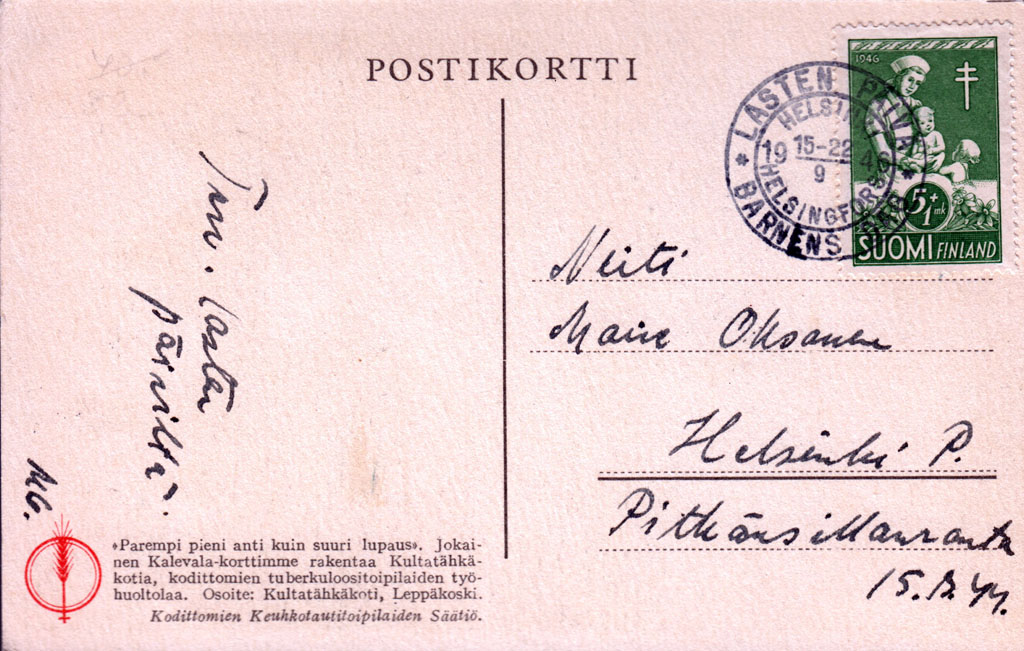 POSTIKORTTI
LASTEN PÄIVÄ
HELSINKI
19 15-22 46
9
HELSINGFORS
BARNENS DAG
1946
5+1 mk
SUOMI FINLAND
Neiti
Oksanen
Helsinki P.
Pitkänsillanranta
15.B.44.
lasten
päiviltä.
MG.
»Parempi pieni anti kuin suuri lupaus». Jokai-
nen Kalevala-korttimme rakentaa Kultatähkä-
kotia, kodittomien tuberkuloositoipilaiden työ-
huoltolaa. Osoite: Kultatähkäkoti, Leppäkoski.
Kodittomien Keuhkotautitoipilaiden Säätiö.